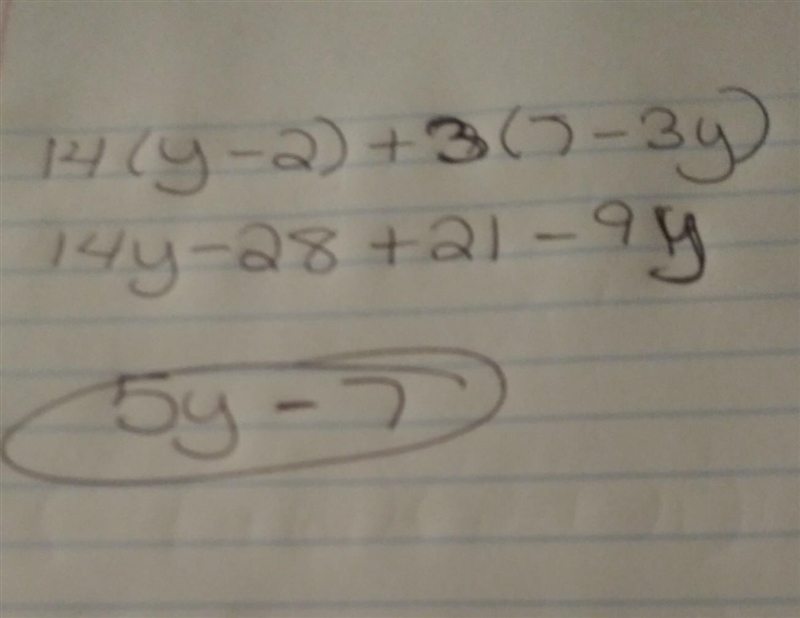 14(y-2)+3(7-3y)
14y-28+21-9y
5y-7